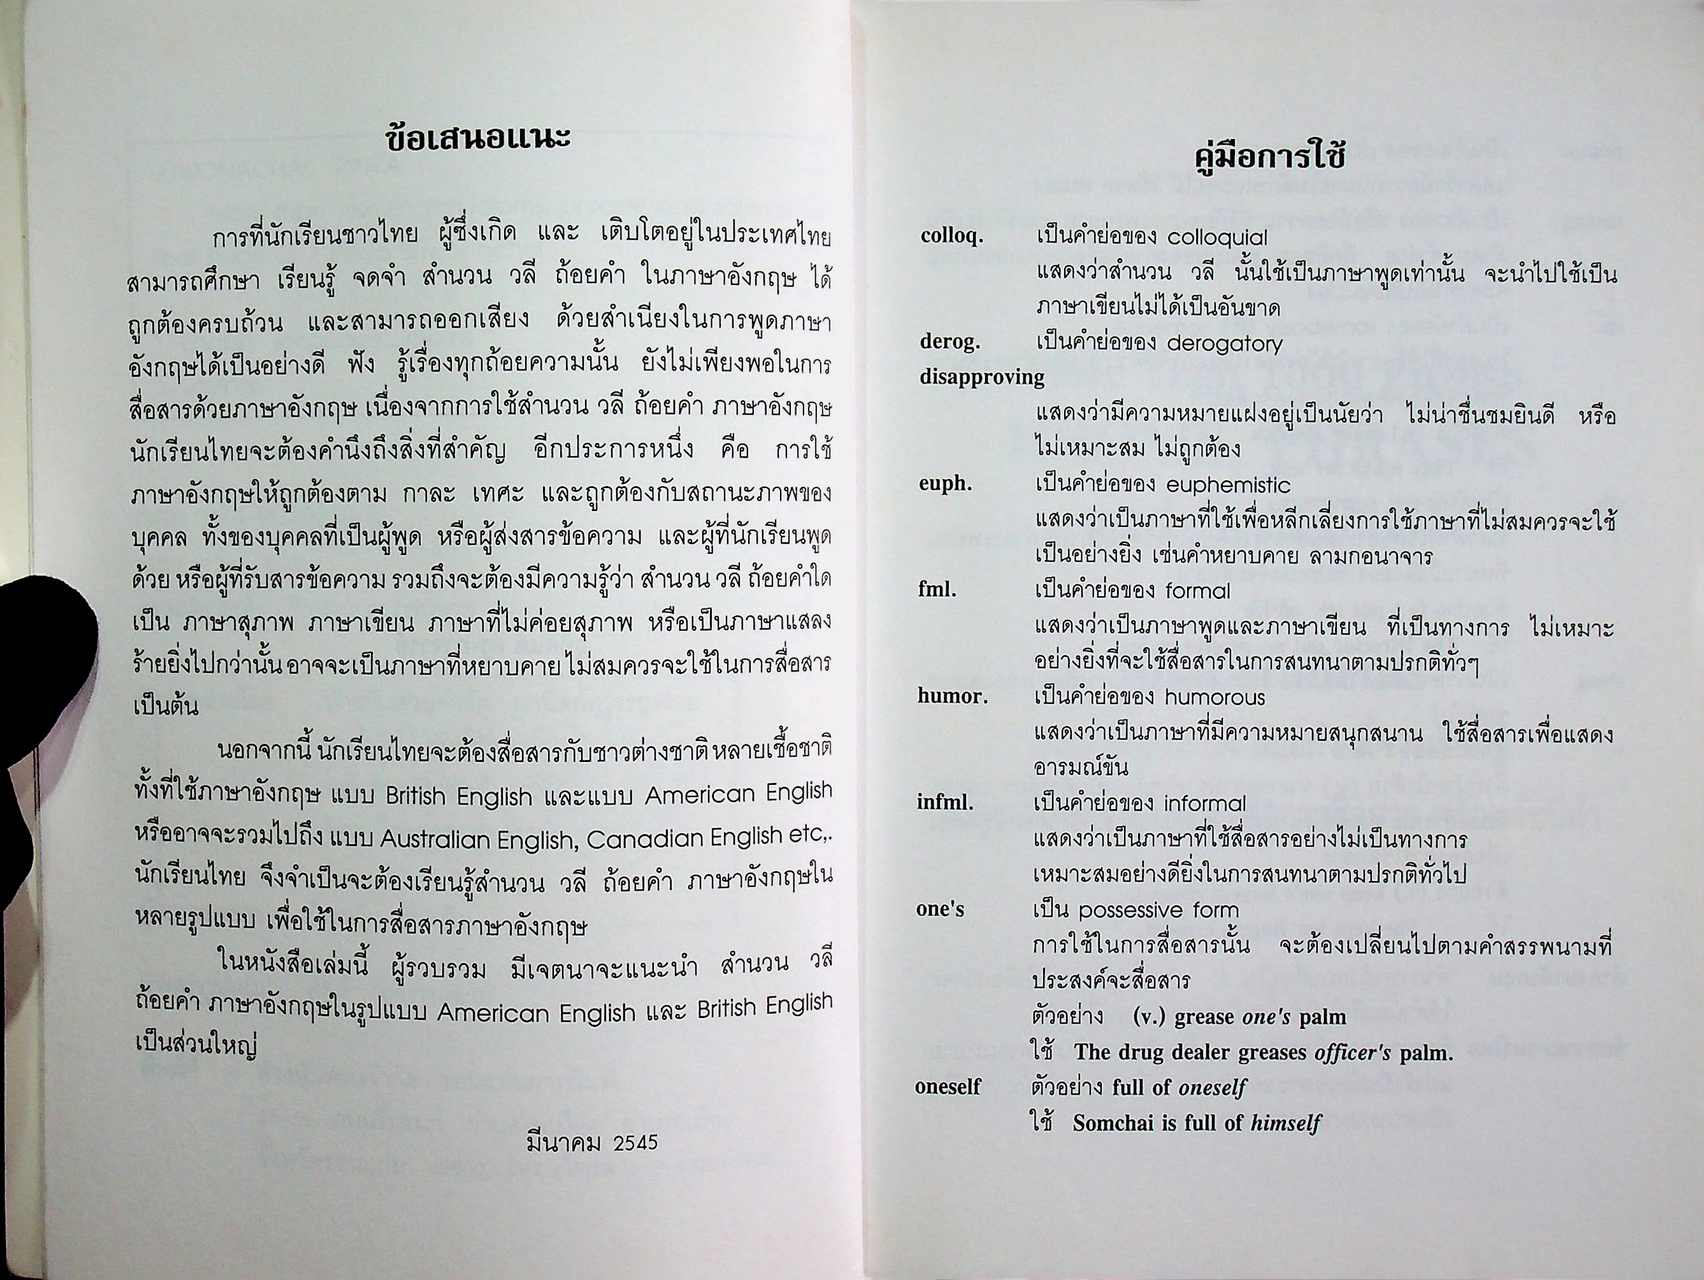 ข้อเสนอแนะ
การที่นักเรียนชาวไทย ผู้ซึ่งเกิด และ เติบโตอยู่ในประเทศไทย
สามารถศึกษา เรียนรู้ จดจำ สำนวน วลี ถ้อยคำ ในภาษาอังกฤษ ได้
ถูกต้องครบถ้วน และสามารถออกเสียง ด้วยสำเนียงในการพูดภาษา
อังกฤษได้เป็นอย่างดี ฟัง รู้เรื่องทุกถ้อยความนั้น ยังไม่เพียงพอในการ
สื่อสารด้วยภาษาอังกฤษ เนื่องจากการใช้สำนวน วลี ถ้อยคำ ภาษาอังกฤษ
นักเรียนไทยจะต้องคำนึงถึงสิ่งที่สำคัญ อีกประการหนึ่ง คือ การใช้
ภาษาอังกฤษให้ถูกต้องตาม กาละ เทศะ และถูกต้องกับสถานะภาพของ
บุคคล ทั้งของบุคคลที่เป็นผู้พูด หรือผู้ส่งสารข้อความ และผู้ที่นักเรียนพูด
ด้วย หรือผู้ที่รับสารข้อความ รวมถึงจะต้องมีความรู้ว่า สำนวน วลี ถ้อยคำใด
เป็น ภาษาสุภาพ ภาษาเขียน ภาษาที่ไม่ค่อยสุภาพ หรือเป็นภาษาแสลง
ร้ายยิ่งไปกว่านั้น อาจจะเป็นภาษาที่หยาบคาย ไม่สมควรจะใช้ในการสื่อสาร
เป็นต้น
นอกจากนี้ นักเรียนไทยจะต้องสื่อสารกับชาวต่างชาติ หลายเชื้อชาติ
ทั้งที่ใช้ภาษาอังกฤษ แบบ British English และแบบ American English
หรืออาจจะรวมไปถึง แบบ Australian English, Canadian English etc,.
นักเรียนไทย จึงจำเป็นจะต้องเรียนรู้สำนวน วลี ถ้อยคำ ภาษาอังกฤษใน
หลายรูปแบบ เพื่อใช้ในการสื่อสารภาษาอังกฤษ
ในหนังสือเล่มนี้ ผู้รวบรวม มีเจตนาจะแนะนำ สำนวน วลี
ถ้อยคำ ภาษาอังกฤษในรูปแบบ American English และ British English
เป็นส่วนใหญ่
มีนาคม 2545
คู่มือการใช้
colloq. เป็นคำย่อของ colloquial
แสดงว่าสำนวน วลี นั้นใช้เป็นภาษาพูดเท่านั้น จะนำไปใช้เป็น
ภาษาเขียนไม่ได้เป็นอันขาด
derog. เป็นคำย่อของ derogatory
disapproving
แสดงว่ามีความหมายแฝงอยู่เป็นนัยว่า ไม่น่าชื่นชมยินดี หรือ
ไม่เหมาะสม ไม่ถูกต้อง
euph. เป็นคำย่อของ euphemistic
แสดงว่าเป็นภาษาที่ใช้เพื่อหลีกเลี่ยงการใช้ภาษาที่ไม่สมควรจะใช้
เป็นอย่างยิ่ง เช่นคำหยาบคาย ลามกอนาจาร
fml. เป็นคำย่อของ formal
แสดงว่าเป็นภาษาพูดและภาษาเขียน ที่เป็นทางการ ไม่เหมาะ
อย่างยิ่งที่จะใช้สื่อสารในการสนทนาตามปรกติทั่วๆ
humor. เป็นคำย่อของ humorous
แสดงว่าเป็นภาษาที่มีความหมายสนุกสนาน ใช้สื่อสารเพื่อแสดง
อารมณ์ขัน
infml. เป็นคำย่อของ informal
แสดงว่าเป็นภาษาที่ใช้สื่อสารอย่างไม่เป็นทางการ
เหมาะสมอย่างดียิ่งในการสนทนาตามปรกติทั่วไป
one's เป็น possessive form
การใช้ในการสื่อสารนั้น จะต้องเปลี่ยนไปตามคำสรรพนามที่
ประสงค์จะสื่อสาร
ตัวอย่าง (v.) grease one's palm
ใช้ The drug dealer greases officer's palm.
oneself ตัวอย่าง full of oneself
ใช้ Somchai is full of himself